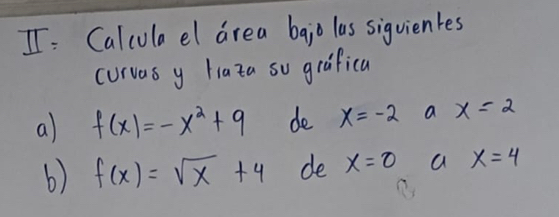 II= Calcula el área bajo las siguientes
curvas y traza su gráfica
a) f(x)=-x²+9 de x=-2 a x=2
b) f(x)=√x +4 de x=0 a x=4